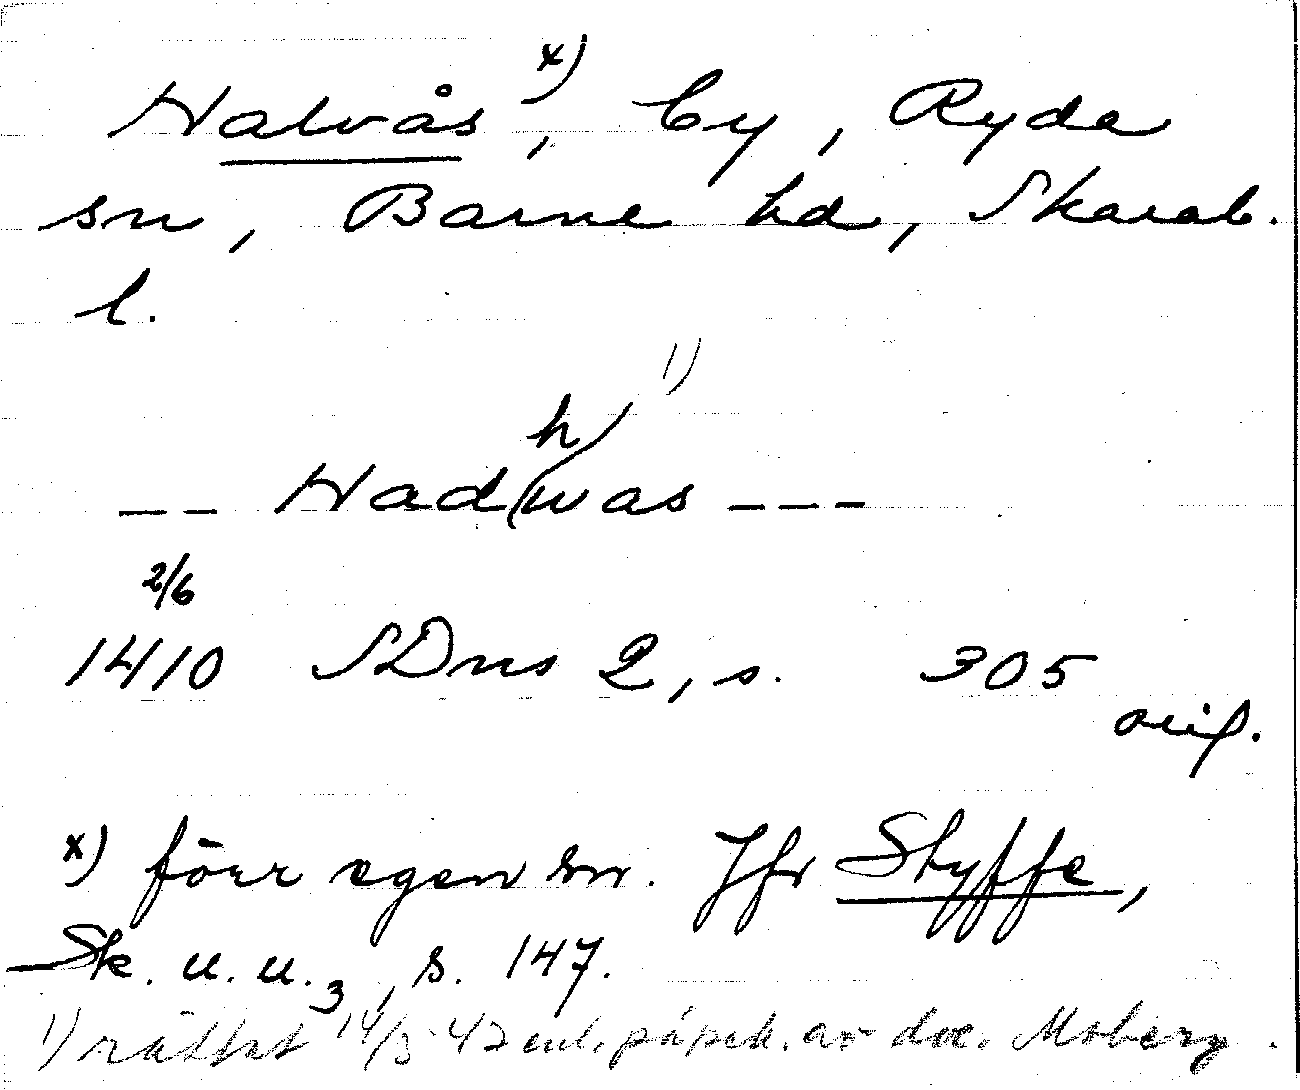 Halvås x), by, Ryda
sn, Barne hd, Skarab.
l.
1)
-- Had(h)was ---
2/6
1410 SDns 2, s. 305
orig.
x) förr egen sn. Jfr Styffe,
Sk. u. u. 3, s. 147.
1) rättat 14/3 47 enl. påpek. av doc. Moberg.